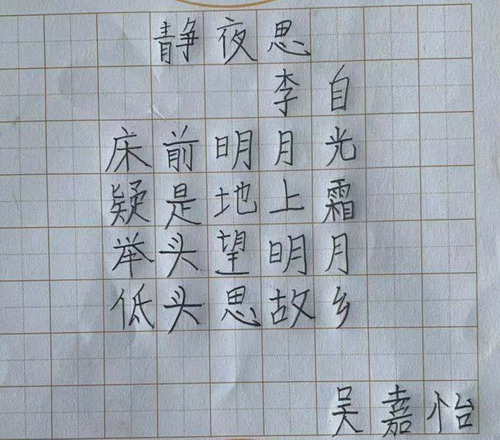 静夜思
李自
床前明月光
疑是地上霜
举头望明月
低头思故乡
吴嘉怡